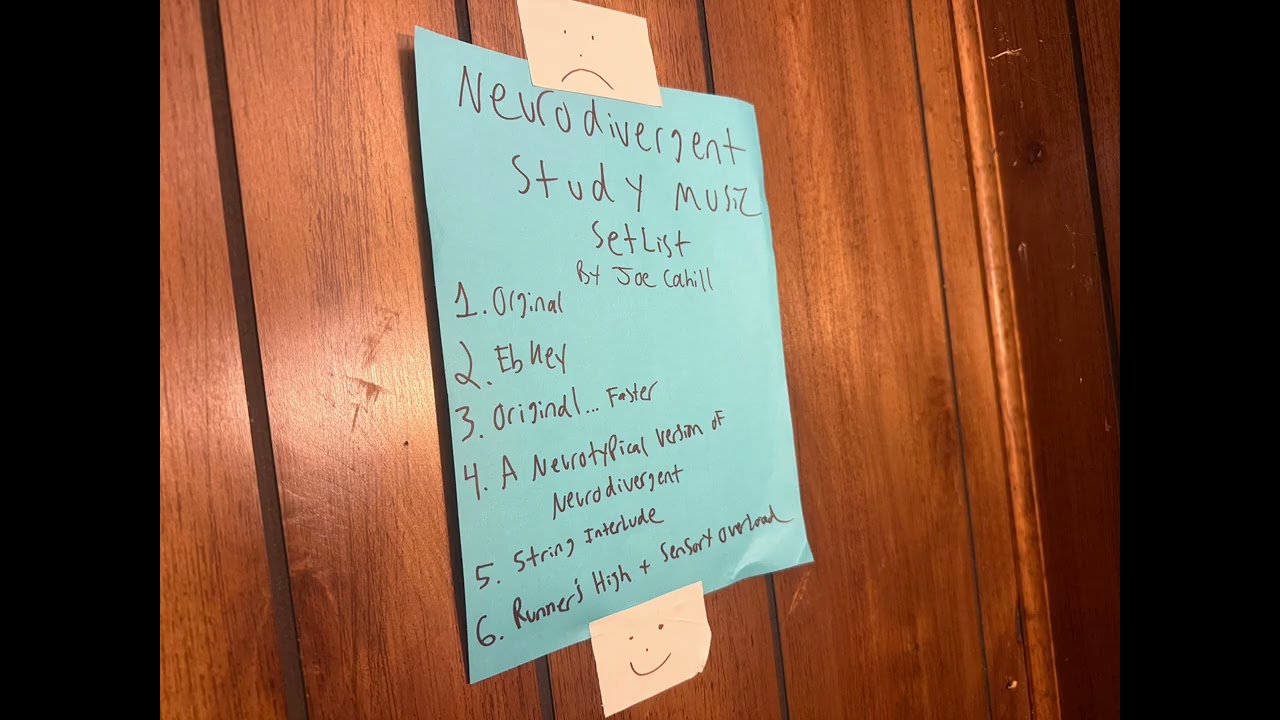 Neurodivergent
Study Music
SetList
By Joe Cahill
1. Orginal
2. Eb Key
3. Original... Faster
4. A Neurotypical Version of
Neurodivergent
5. String Interlude
6. Runner's High + Sensory Overload